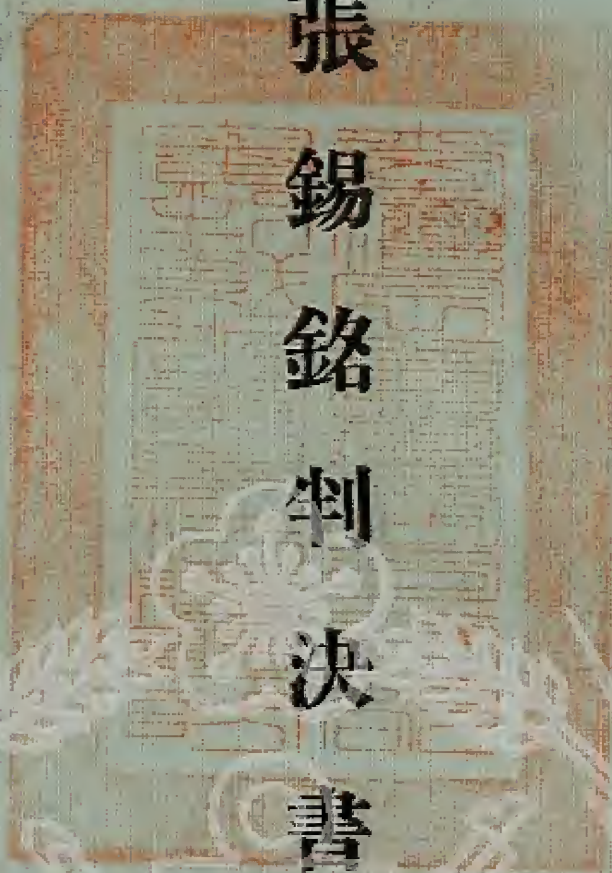 張錫銘判決書